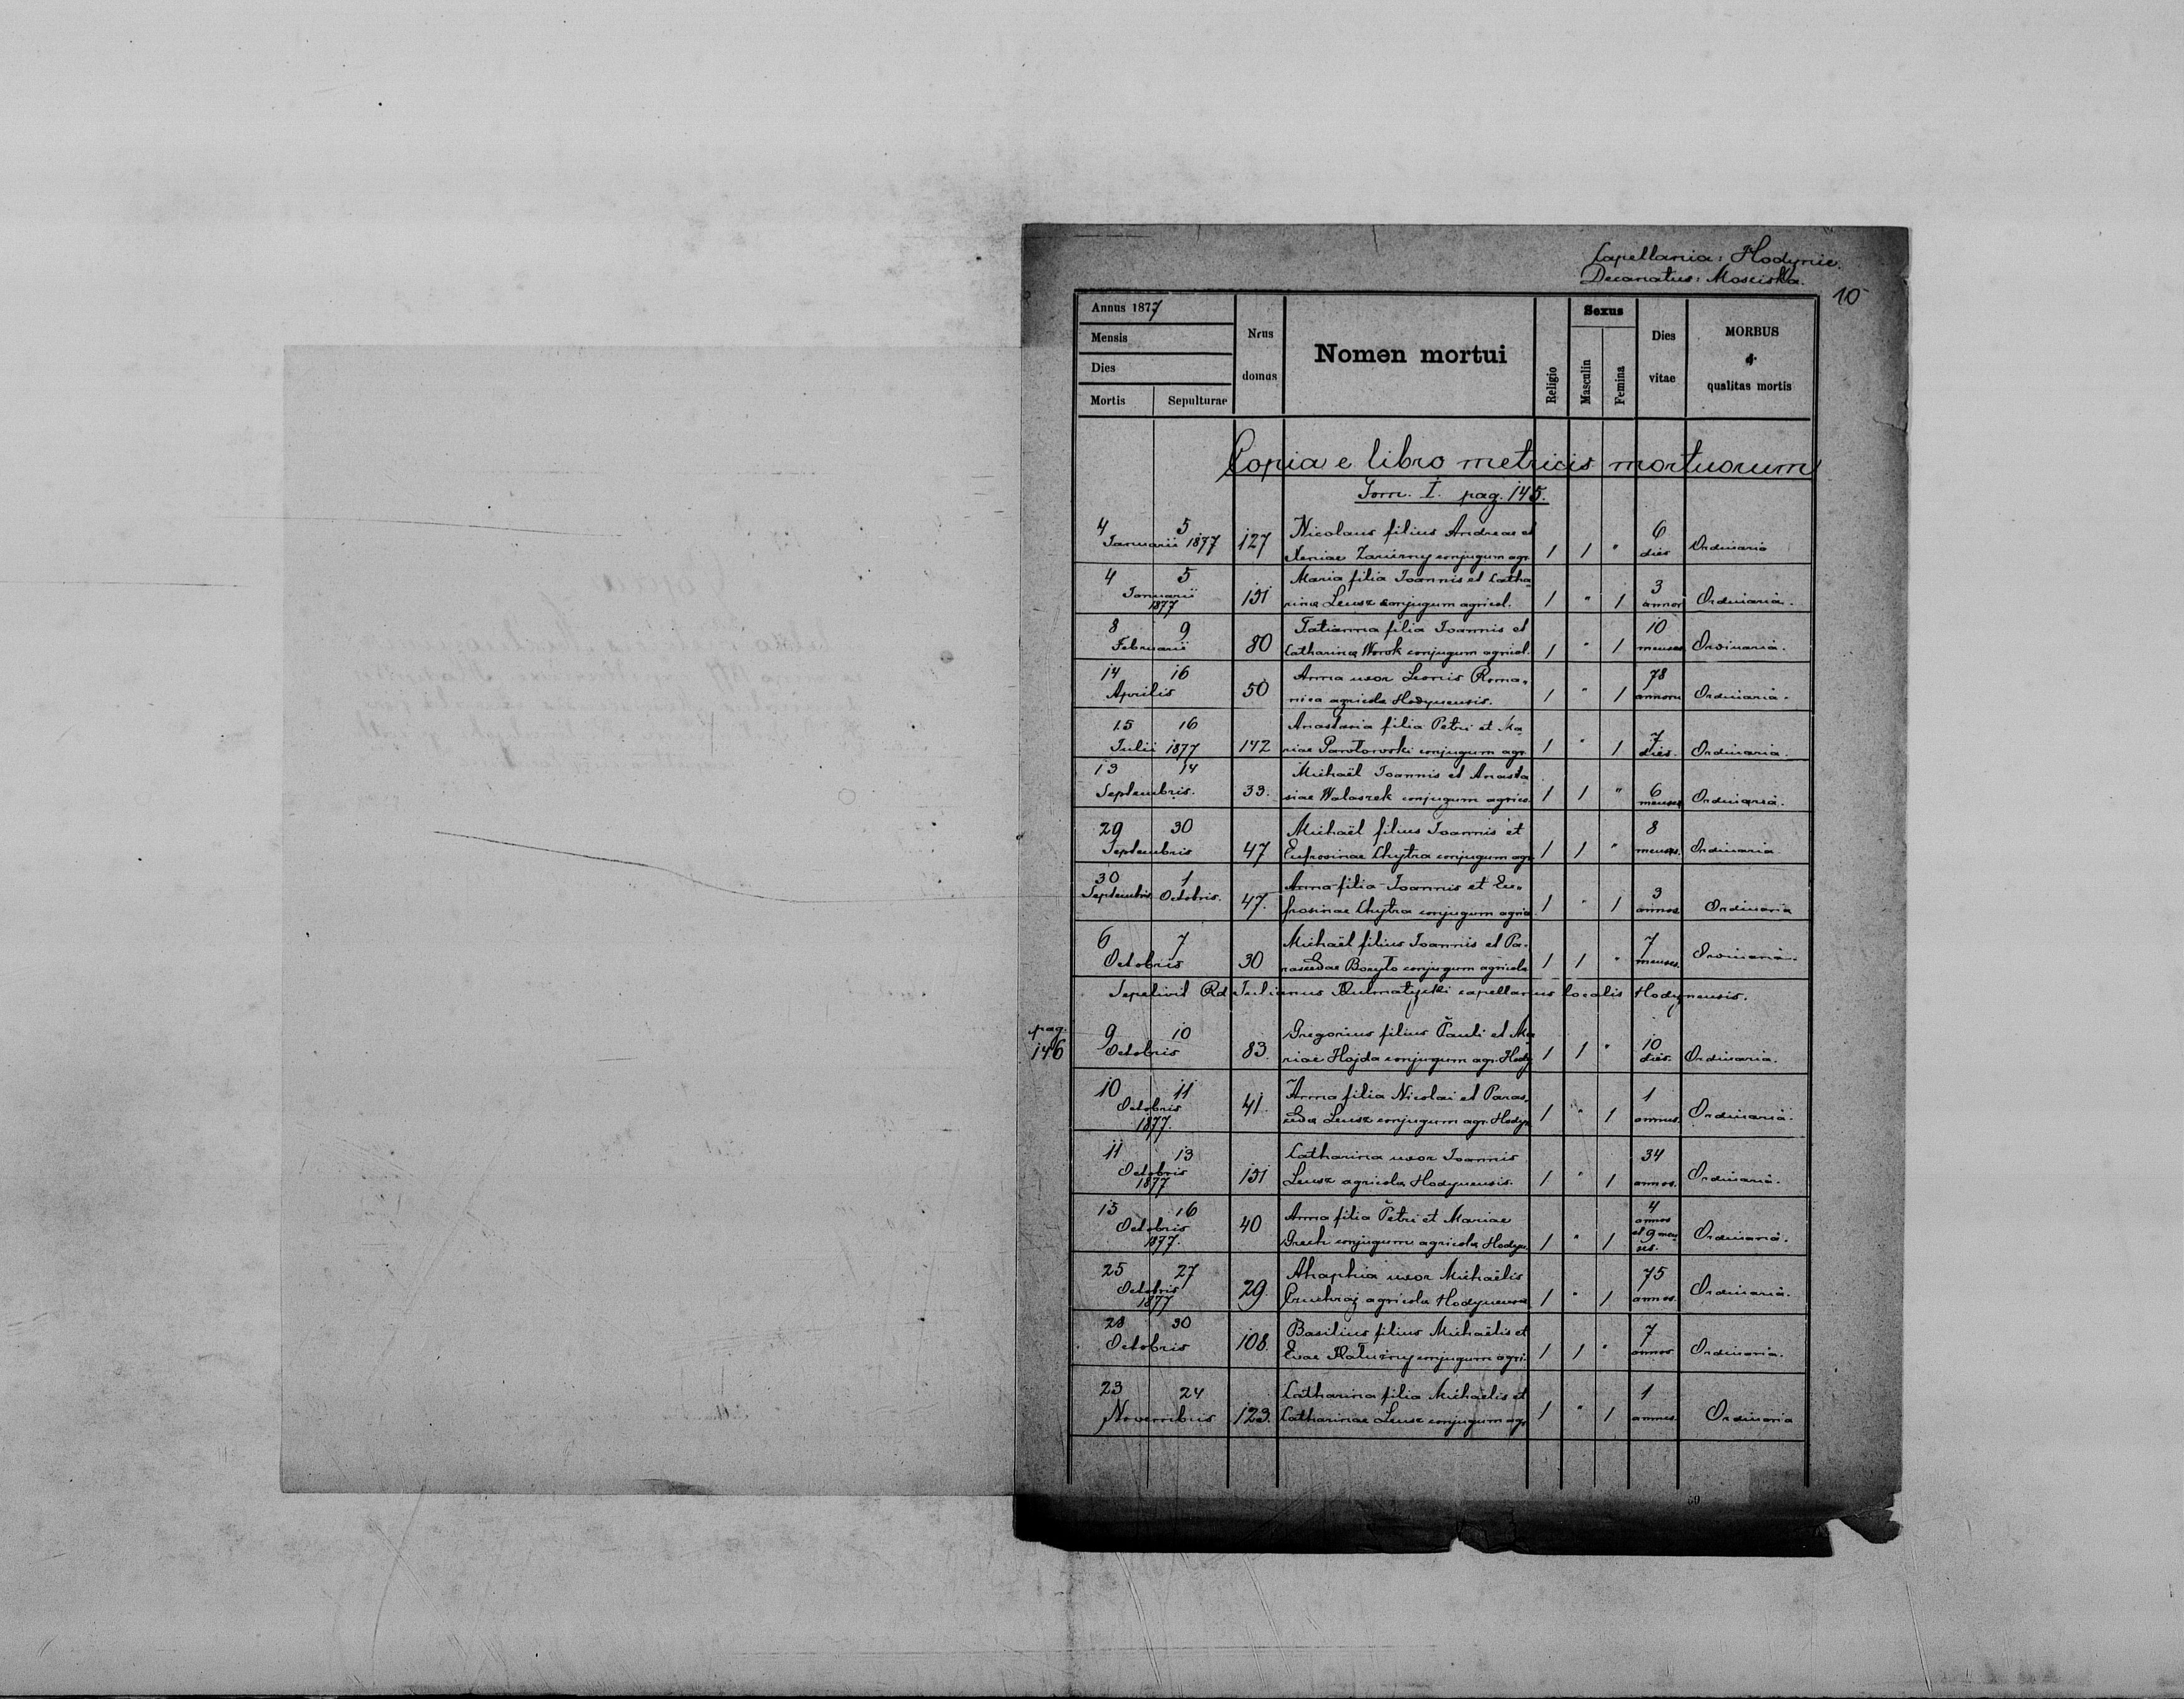 Capellania: Hodynie.
Decanatus: Mosciska.
10
Annus 1877
Mensis
Dies
Mortis Sepulturae
Nrus domus
Nomen mortui
Religio
Sexus
Masculin
Femina
Dies vitae
MORBUS
&
qualitas mortis
Copia e libro metricis mortuorum
Tom. I. pag. 145.
4 5 Nicolaus filius Andreae et 6
Januarii 1877 127 Xeniae conjugum agr. 1 1 " dies Ordinaria
4 5 Maria filia Joannis et Catha- 3
Januarii 1877 131 rinae Leusz conjugum agricol. 1 " 1 annos Ordinaria.
8 9 Tatianna filia Joannis et 10
Februarii 80 Catharinae Worok conjugum agricol. 1 " 1 menses Ordinaria.
14 16 Anna uxor Leonis Roma- 78
Aprilis 50 nica agricola Hodynensis. 1 " 1 annorum Ordinaria.
15 16 Anastasia filia Petri et Ma- 7
Julii 1877 142 riae conjugum agr. 1 " 1 dies. Ordinaria.
13 14 Michaël Joannis et Anasta
Septembris. 33. siae Walaszek conjugum agrico. 1 1 " 6 menses Ordinaria.
29 30 Michaël filius Joannis et 8
Septembris 47 Eufrosinae Chytra conjugum agr. 1 1 " menses. Ordinaria
30 1 Anna filia Joannis et Eu-
Septembris Octobris. 47. frosinae Chytra conjugum agric. 1 " 1 3 annos Ordinaria
6 7 Michaël filius Joannis et Pa- 7
Octobris 30 rascedae Boryto conjugum agricola 1 1 " menses. Ordinaria.
Sepelivit Rd Julianus Kulmatycki capellanus localis Hodynensis.
pag. 146
9 10 Gregorius filius Pauli et Ma 10
Octobris 83. riae Hajda conjugum agr. Hody 1 1 " dies. Ordinaria.
10 11 Anna filia Nicolai et Paras- 1
Octobris 1877. 41. cedae Leusz conjugum agr. Hodyn 1 " 1 annus. Ordinaria.
11 13 Catharina uxor Joannis 34
Octobris 1877 131 Leusz agricola Hodynensis. 1 " 1 annos. Ordinaria.
15 16 Anna filia Petri et Mariae 4 annos
Octobris 1877. 40 Grech conjugum agricola Hodyn. 1 " 1 et 9 menses. Ordinaria.
25 27 Ahaphia uxor Michaëlis 75
Octobris 1877 29. agricola Hodynensis 1 " 1 annos. Ordinaria.
28 30 Basilius filius Michaëlis et 7
Octobris 108. Evae conjugum agri. 1 1 " annos Ordinaria.
23 24 Catharina filia Michaëlis et 1
Novembris 123. Catharinae Leusz conjugum agr 1 " 1 annus. Ordinaria